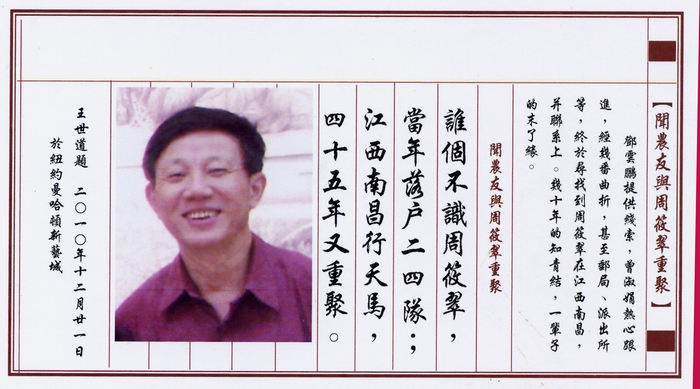 【聞農友與周筱翠重聚】
鄧雲鵬提供綫索，曾淑娟熱心跟
進，經幾番曲折，甚至郵局、派出所
等，終於尋找到周筱翠在江西南昌，
并聯系上。幾十年的知青結，一輩子
的未了緣。
聞農友與周筱翠重聚
誰個不識周筱翠，
當年落户二四隊；
江西南昌行天馬，
四十五年又重聚。
王世道題 二〇一〇年十二月廿一日
於紐約曼哈頓新藝城